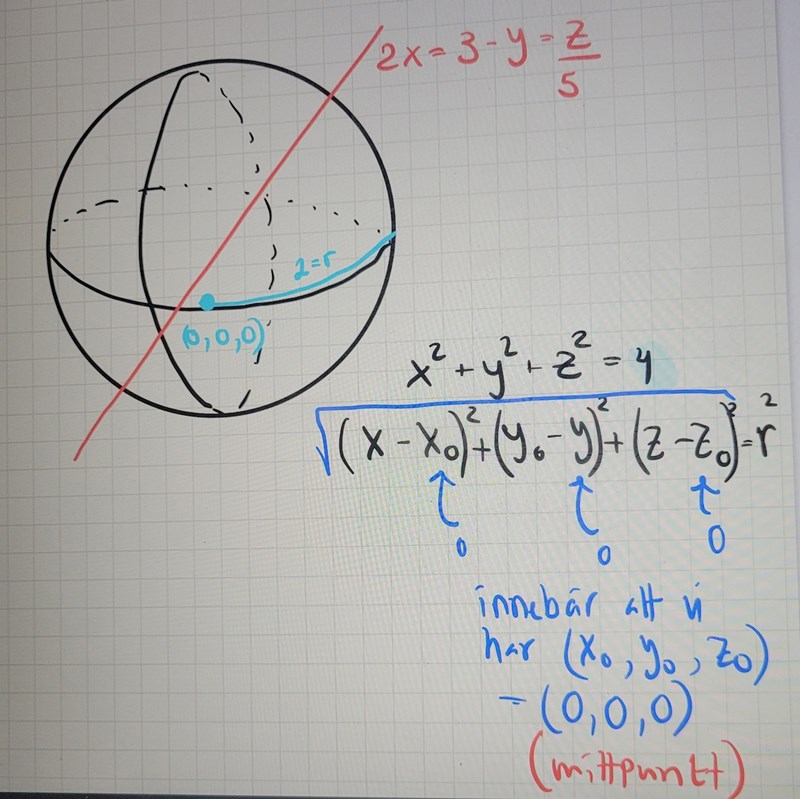 2x = 3 - y = z/5
2 = r
(0,0,0)
x² + y² + z² = 4
√(x - x₀)² + (y₀ - y)² + (z - z₀)² = r²
0 0 0
innebär att vi
har (x₀, y₀, z₀)
= (0,0,0)
(mittpunkt)